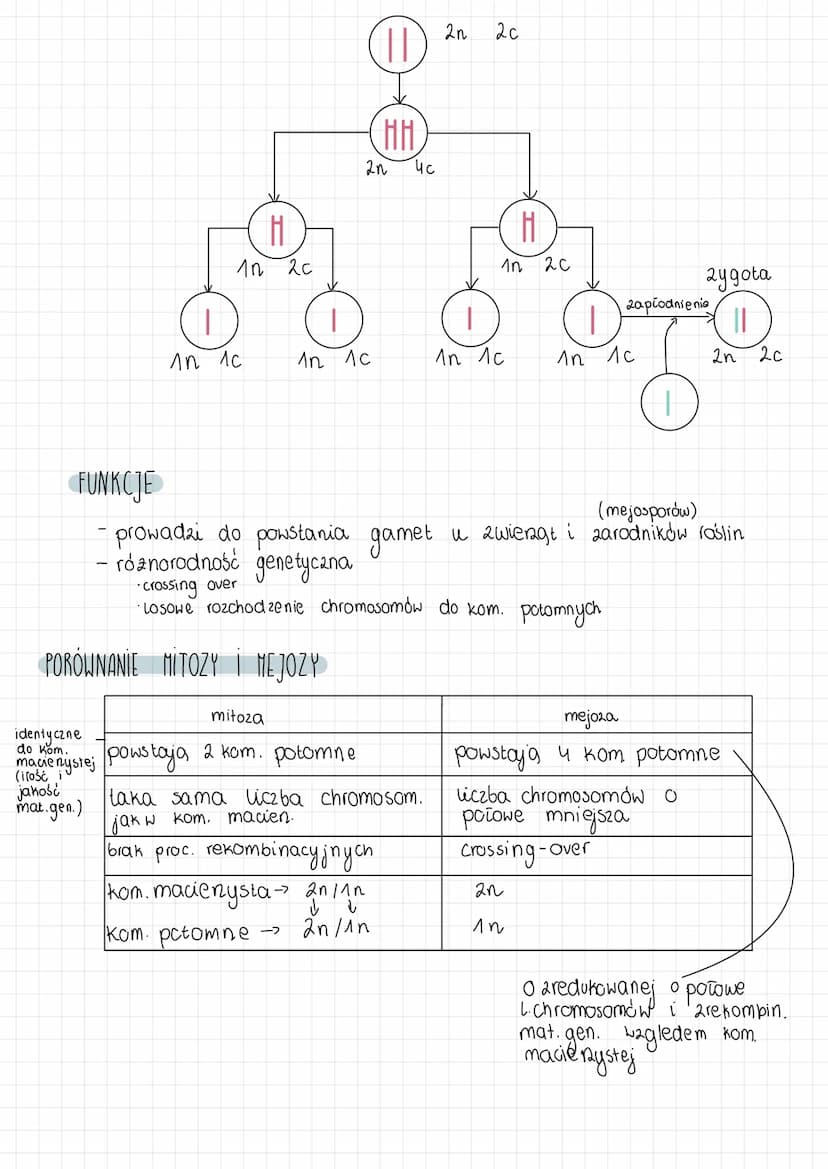 2n 2c
2n 4c
1n 2c
1n 2c
zygota
zapłodnienie
1n 1c
1n 1c
1n 1c
1n 1c
2n 2c
FUNKCJE
(mejosporów)
- prowadzi do powstania gamet u zwierząt i zarodników roślin
- różnorodność genetyczna
· crossing over
· Losowe rozchodzenie chromosomów do kom. potomnych
PORÓWNANIE MITOZY I MEJOZY
mitoza
mejoza
identyczne
do kom.
macierzystej
(ilość i
jakość
mat.gen.)
powstają 2 kom. potomne
powstają 4 kom potomne
taka sama liczba chromosom.
jak w kom. macierz.
liczba chromosomów o
połowe mniejsza
brak proc. rekombinacyjnych
crossing-over
kom. macierzysta → 2n/1n
2n
kom. potomne → 2n/1n
1n
O zredukowanej o połowe
L.chromosomów i zrekombin.
mat.gen. względem kom.
macierzystej